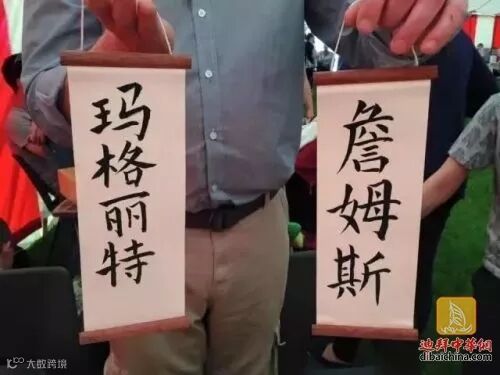 玛格丽特
詹姆斯
迪拜中華網
dibaichina.com
大数跨境